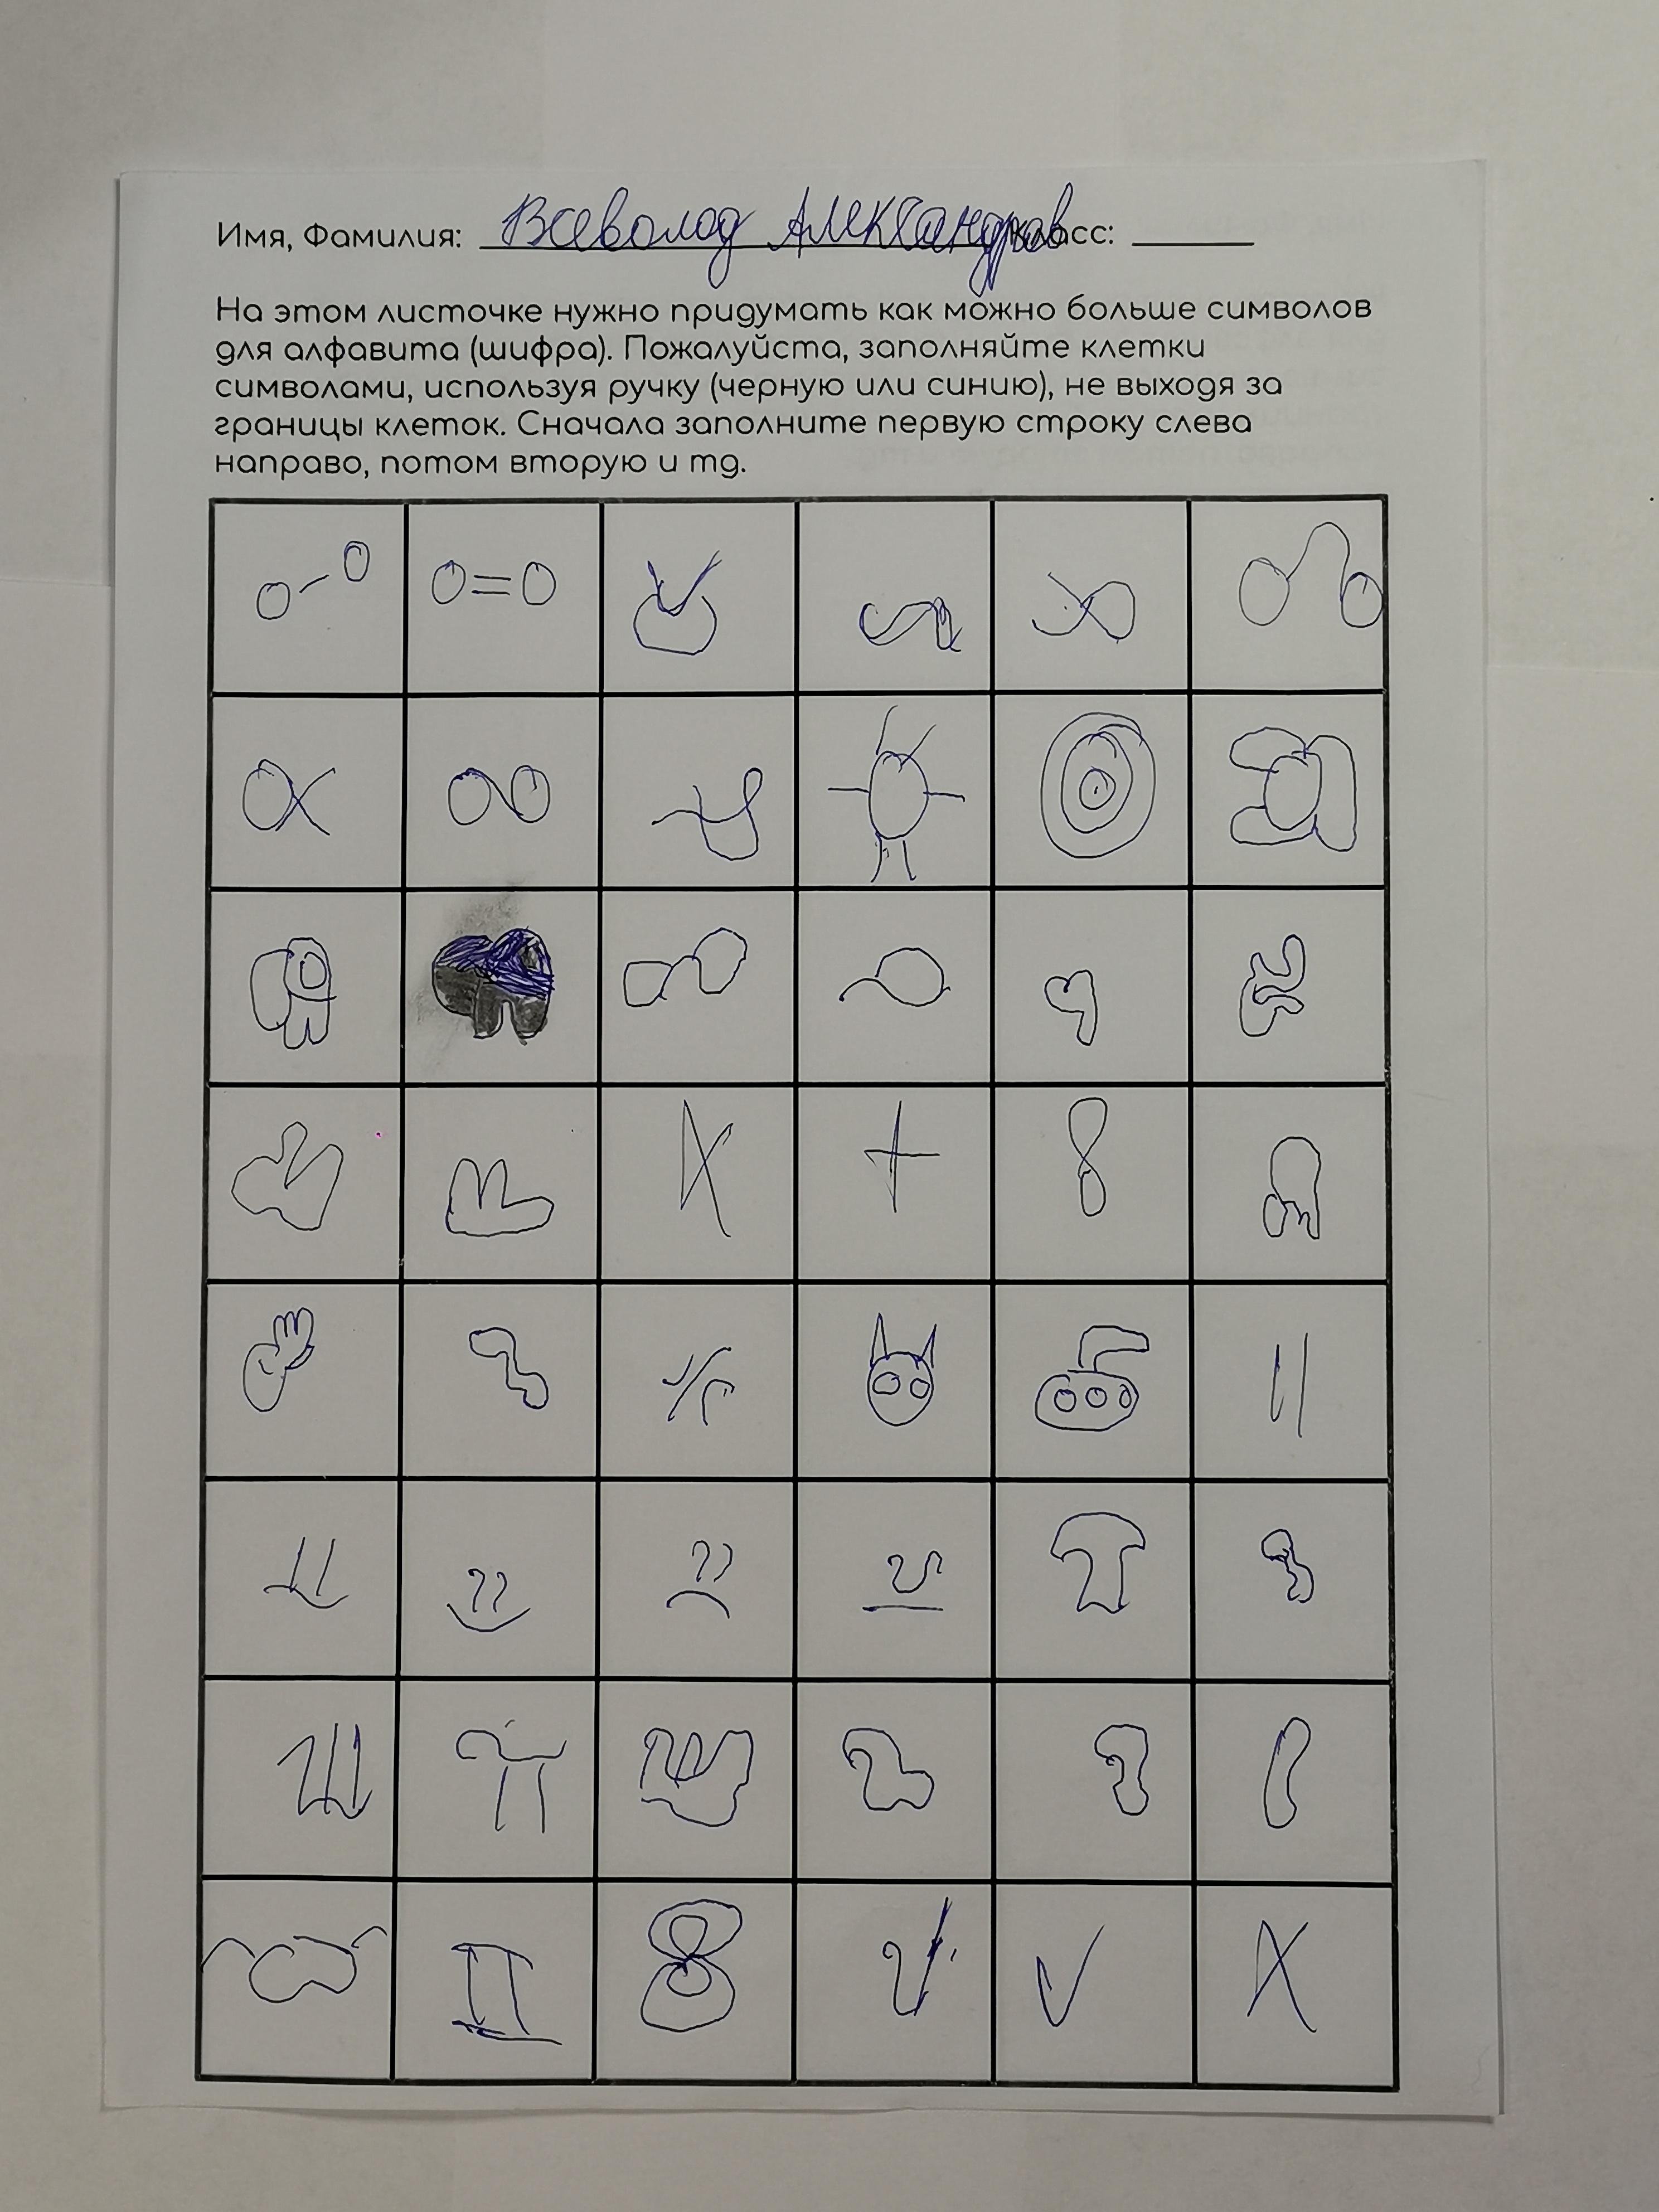 Имя, Фамилия: Всеволод Александров Класс:
На этом листочке нужно придумать как можно больше символов
для алфавита (шифра). Пожалуйста, заполняйте клетки
символами, используя ручку (черную или синию), не выходя за
границы клеток. Сначала заполните первую строку слева
направо, потом вторую и тд.